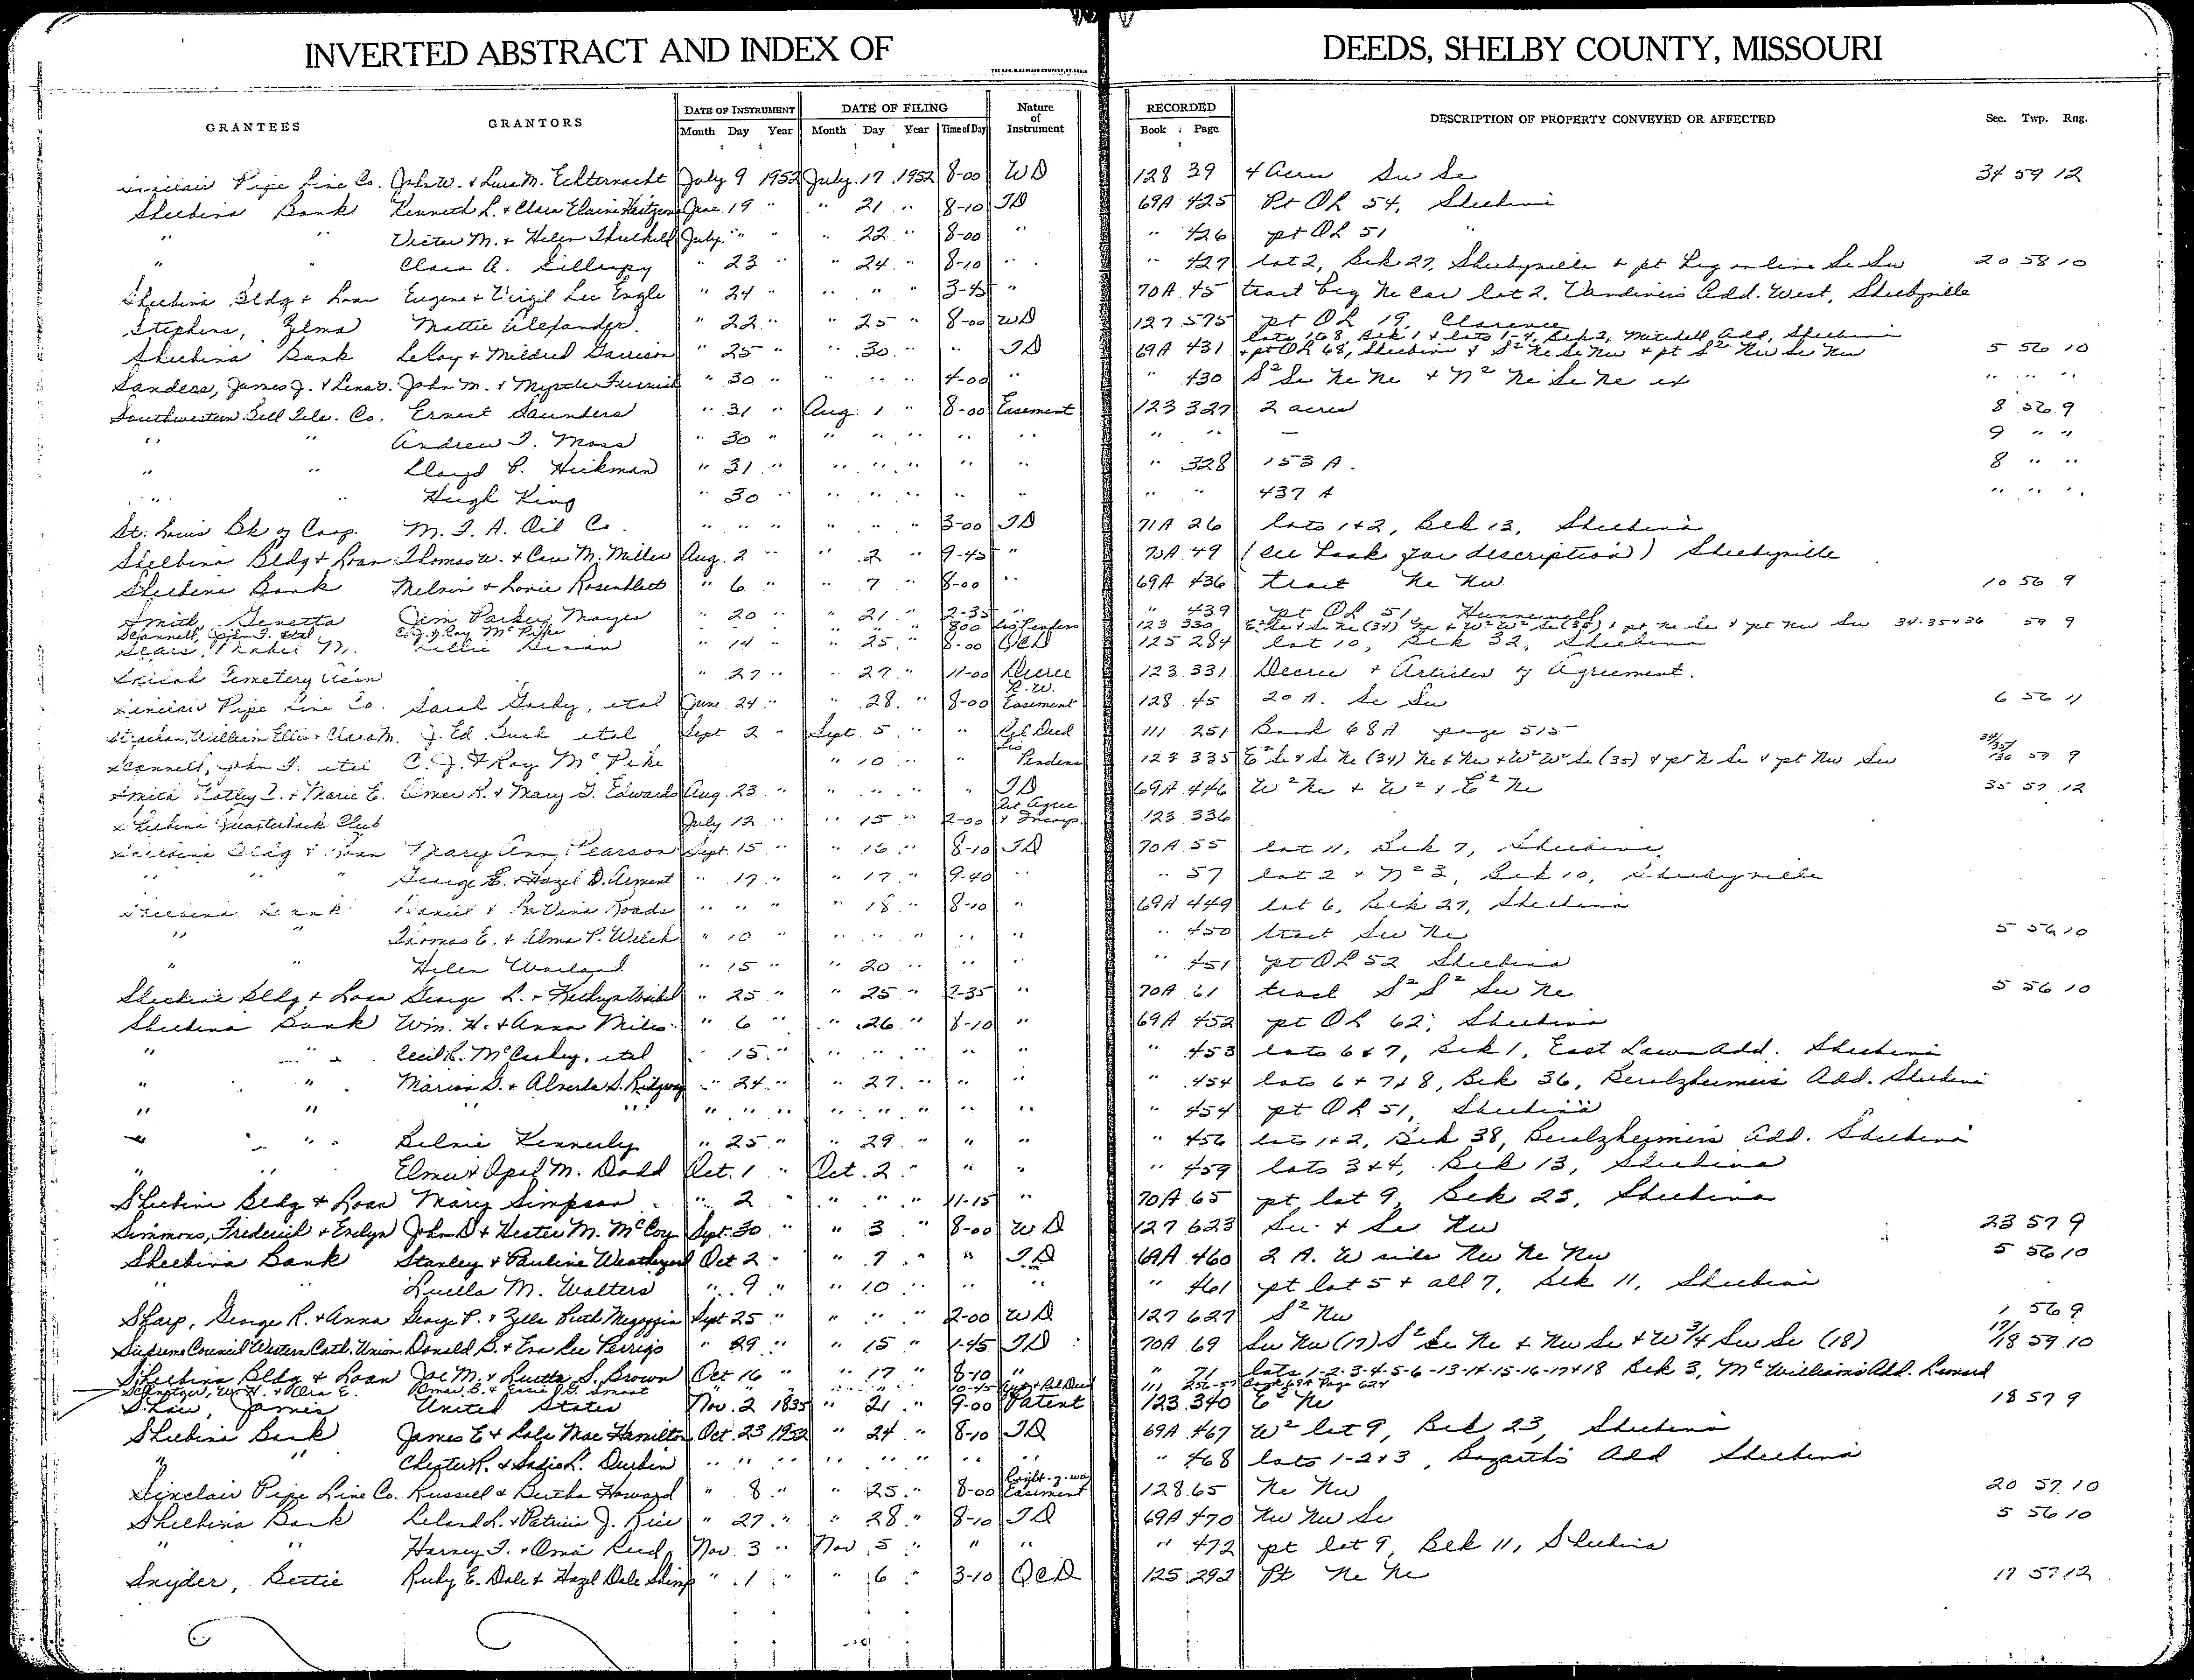 INVERTED ABSTRACT AND INDEX OF DEEDS, SHELBY COUNTY, MISSOURI
GRANTEES GRANTORS DATE OF INSTRUMENT DATE OF FILING Nature of Instrument RECORDED DESCRIPTION OF PROPERTY CONVEYED OR AFFECTED Sec. Twp. Rng.
Month Day Year Month Day Year Time of Day Book Page
Sinclair Pipe Line Co. John W. & Lura M. Echternacht July 9 1952 July 17 1952 8-00 WD 128 39 4 Acres Sw Se 34 59 12
Shelbina Bank Kenneth L. & Clara Elaine June 19 " " 21 " 8-10 TD 69A 425 Pt OL 54, Shelbina
" " Victor M. & Helen Threlkeld July " " " 22 " 8-00 " " 426 pt OL 51 "
" " Clara A. Gillaspy " 23 " " 24 " 8-10 " " 427 lot 2, Blk 27, Shelbyville & pt beg on line Se Sw 20 58 10
Shelbina Bldg & Loan Eugene & Virgil Lee Engle " 24 " " " " 3-45 " 70A 45 tract beg Ne Cor lot 2, Vandiver's Add. West, Shelbyville
Stephens, Zelma Mattie Alexander " 22 " " 25 " 8-00 WD 127 575 pt OL 19, Clarence
Shelbina Bank LeRoy & Mildred Garrison " 25 " " 30 " " TD 69A 431 Blk 1 & lots 1-4, Blk 2, Mitchell Add, Shelbina & pt OL 68, Shelbina & S² Ne Se Nw & pt S² Nw Se Nw 5 56 10
Sanders, James J. & Lena V. John M. & Myrtle Furnish " 30 " " " " 4-00 " " 430 S² Se Ne Ne & N² Ne Se Ne ex " " "
Southwestern Bell Tele. Co. Ernest Saunders " 31 " Aug 1 " 8-00 Easement 123 327 2 acres 8 56 9
" " Andrew T. Moss " 30 " " " " " " " " — 9 " "
" " Lloyd P. Hickman " 31 " " " " " " " 328 153 A. 8 " "
" " Hugh King " 30 " " " " " " " " 437 A " " "
St. Louis Bk of Coop. M. F. A. Oil Co. " " " " " " 3-00 TD 71A 26 lots 1 & 2, Blk 13, Shelbina
Shelbina Bldg & Loan Thomas W. & Cora M. Miller Aug. 2 " " 2 " 9-45 " 70A 49 (see book for description) Shelbyville
Shelbina Bank Melvin & Lovie Rosenblatt " 6 " " 7 " 8-00 " 69A 436 tract Ne Nw 10 56 9
Smith, Genetta Jim Parker Mayes " 20 " " 21 " 2-35 " " 439 pt OL 51, Hunnewell
Scannell, John F. etal C. J. & Roy McPike " " 8-00 Lis Pendens 123 330 E² Se & Se Ne (34) Ne & W² W² Se (35) & pt Ne Se & pt Nw Sw 34-35 & 36 59 9
Sears, Mabel M. " 14 " " 25 " 8-00 QCD 125 284 lot 10, Blk 32, Shelbina
Cemetery Assn " 27 " " 27 " 11-00 Decree 123 331 Decree & Articles of Agreement.
Sinclair Pipe Line Co. Sarah etal June 24 " " 28 " 8-00 R.W. Easement 128 45 20 A. Se Sw 6 56 11
Strachan, William Ellis & Clara M. J. Ed etal Sept 2 " Sept. 5 " " Rel Deed 111 251 Book 68A page 515
Scannell, John F. etal C. J. & Roy McPike " 10 " " Lis Pendens 123 335 E² Se & Se Ne (34) Ne & Nw & W² W² Se (35) & pt Ne Se & pt Nw Sw 34/35/36 59 9
Smith & Marie E. Omer R. & Mary G. Edwards Aug. 23 " " " " " TD 69A 446 W² Ne & W² & E² Ne 35 57 12
Shelbina Quarterback Club July 12 " " 15 " 2-00 Art Agree & Incorp. 123 336
Shelbina Bldg & Loan Mary Ann Pearson Sept. 15 " " 16 " 8-10 TD 70A 55 lot 11, Blk 7, Shelbina
" " " George E. & Hazel D. Arment " 17 " " 17 " 9-40 " " 57 lot 2 & N² 3, Blk 10, Shelbyville
Shelbina Bank Daniel & LaVina Roads " " " " 18 " 8-10 " 69A 449 lot 6, Blk 27, Shelbina
" " Thomas E. & Alma P. Welch " 10 " " " " " " " 450 tract Sw Ne 5 56 10
" " Helen " 15 " " 20 " " " " 451 pt OL 52 Shelbina
Shelbina Bldg & Loan George L. & " 25 " " 25 " 2-35 " 70A 61 tract S² S² Sw Ne 5 56 10
Shelbina Bank Wm. H. & Anna Miles " 6 " " 26 " 8-10 " 69A 452 pt OL 62, Shelbina
" " Cecil R. McCaskey, etal " 15 " " " " " " " 453 lots 6 & 7, Blk 1, East Lawn Add. Shelbina
" " Marion G. & Alverda S. Ridgway " 24 " " 27 " " " " 454 lots 6 & 7 & 8, Blk 36, Beralzheimer's Add. Shelbina
" " " " " " " " " " " " " 454 pt OL 51, Shelbina
" " Kennerly " 25 " " 29 " " " " 456 lots 1 & 2, Blk 38, Beralzheimer's Add. Shelbina
" " Elmer & Opal M. Dodd Oct. 1 " Oct. 2 " " " " 459 lots 3 & 4, Blk 13, Shelbina
Shelbina Bldg & Loan Mary Simpson " 2 " " " " 11-15 " 70A 65 pt lot 9, Blk 25, Shelbina
Simmons, Frederick & Evelyn John D & Hester M. McCoy Sept. 30 " " 3 " 8-00 WD 127 623 Sw & Se Nw 23 57 9
Shelbina Bank Stanley & Pauline Weatherford Oct 2 " " 7 " " TD 69A 460 2 A. W side Nw Ne Nw 5 56 10
" " Luella M. Walters " 9 " " 10 " " " " 461 pt lot 5 & all 7, Blk 11, Shelbina
Sharp, George R. & Anna George P. & Zella Ruth Sept 25 " " " " 2-00 WD 127 627 S² Nw 1 56 9
Supreme Council Western Cath. Union Donald B. & Eva Lee Perrigo " 29 " " 15 " 1-45 TD 70A 69 Sw Nw (17) S² Se Ne & Nw Se & W ¾ Sw Se (18) 17/18 59 10
Shelbina Bldg & Loan Joe M. & Luetta S. Brown Oct 16 " " 17 " 8-10 " " 71 lots 1-2-3-4-5-6-13-14-15-16-17 & 18 Blk 3, McWilliams Add. Leonard
W. H. & Ora E. 10-45 Rel Deed 111 256-57 Book 69A Page 624
James United States Nov. 2 1835 " 21 " 9-00 Patent 123 340 E² Ne 18 57 9
Shelbina Bank James E & Lola Mae Hamilton Oct. 23 1952 " 24 " 8-10 TD 69A 467 W² lot 9, Blk 23, Shelbina
" " Chester R. & Sadie L. Durbin " " " " " " " " " 468 lots 1-2 & 3, Bogarth's Add Shelbina
Sinclair Pipe Line Co. Russell & Bertha Howard " 8 " " 25 " 8-00 Right-of-way Easement 128 65 Ne Nw 20 57 10
Shelbina Bank Leland L. & Patricia J. Rice " 27 " " 28 " 8-10 TD 69A 470 Nw Nw Se 5 56 10
" " Harvey T. & Oma Reed Nov. 3 " Nov 5 " " " " 472 pt lot 9, Blk 11, Shelbina
Snyder, Bettie Ruby E. Dale & Hazel Dale " 1 " " 6 " 3-10 QCD 125 292 Pt Ne Ne 17 57 12